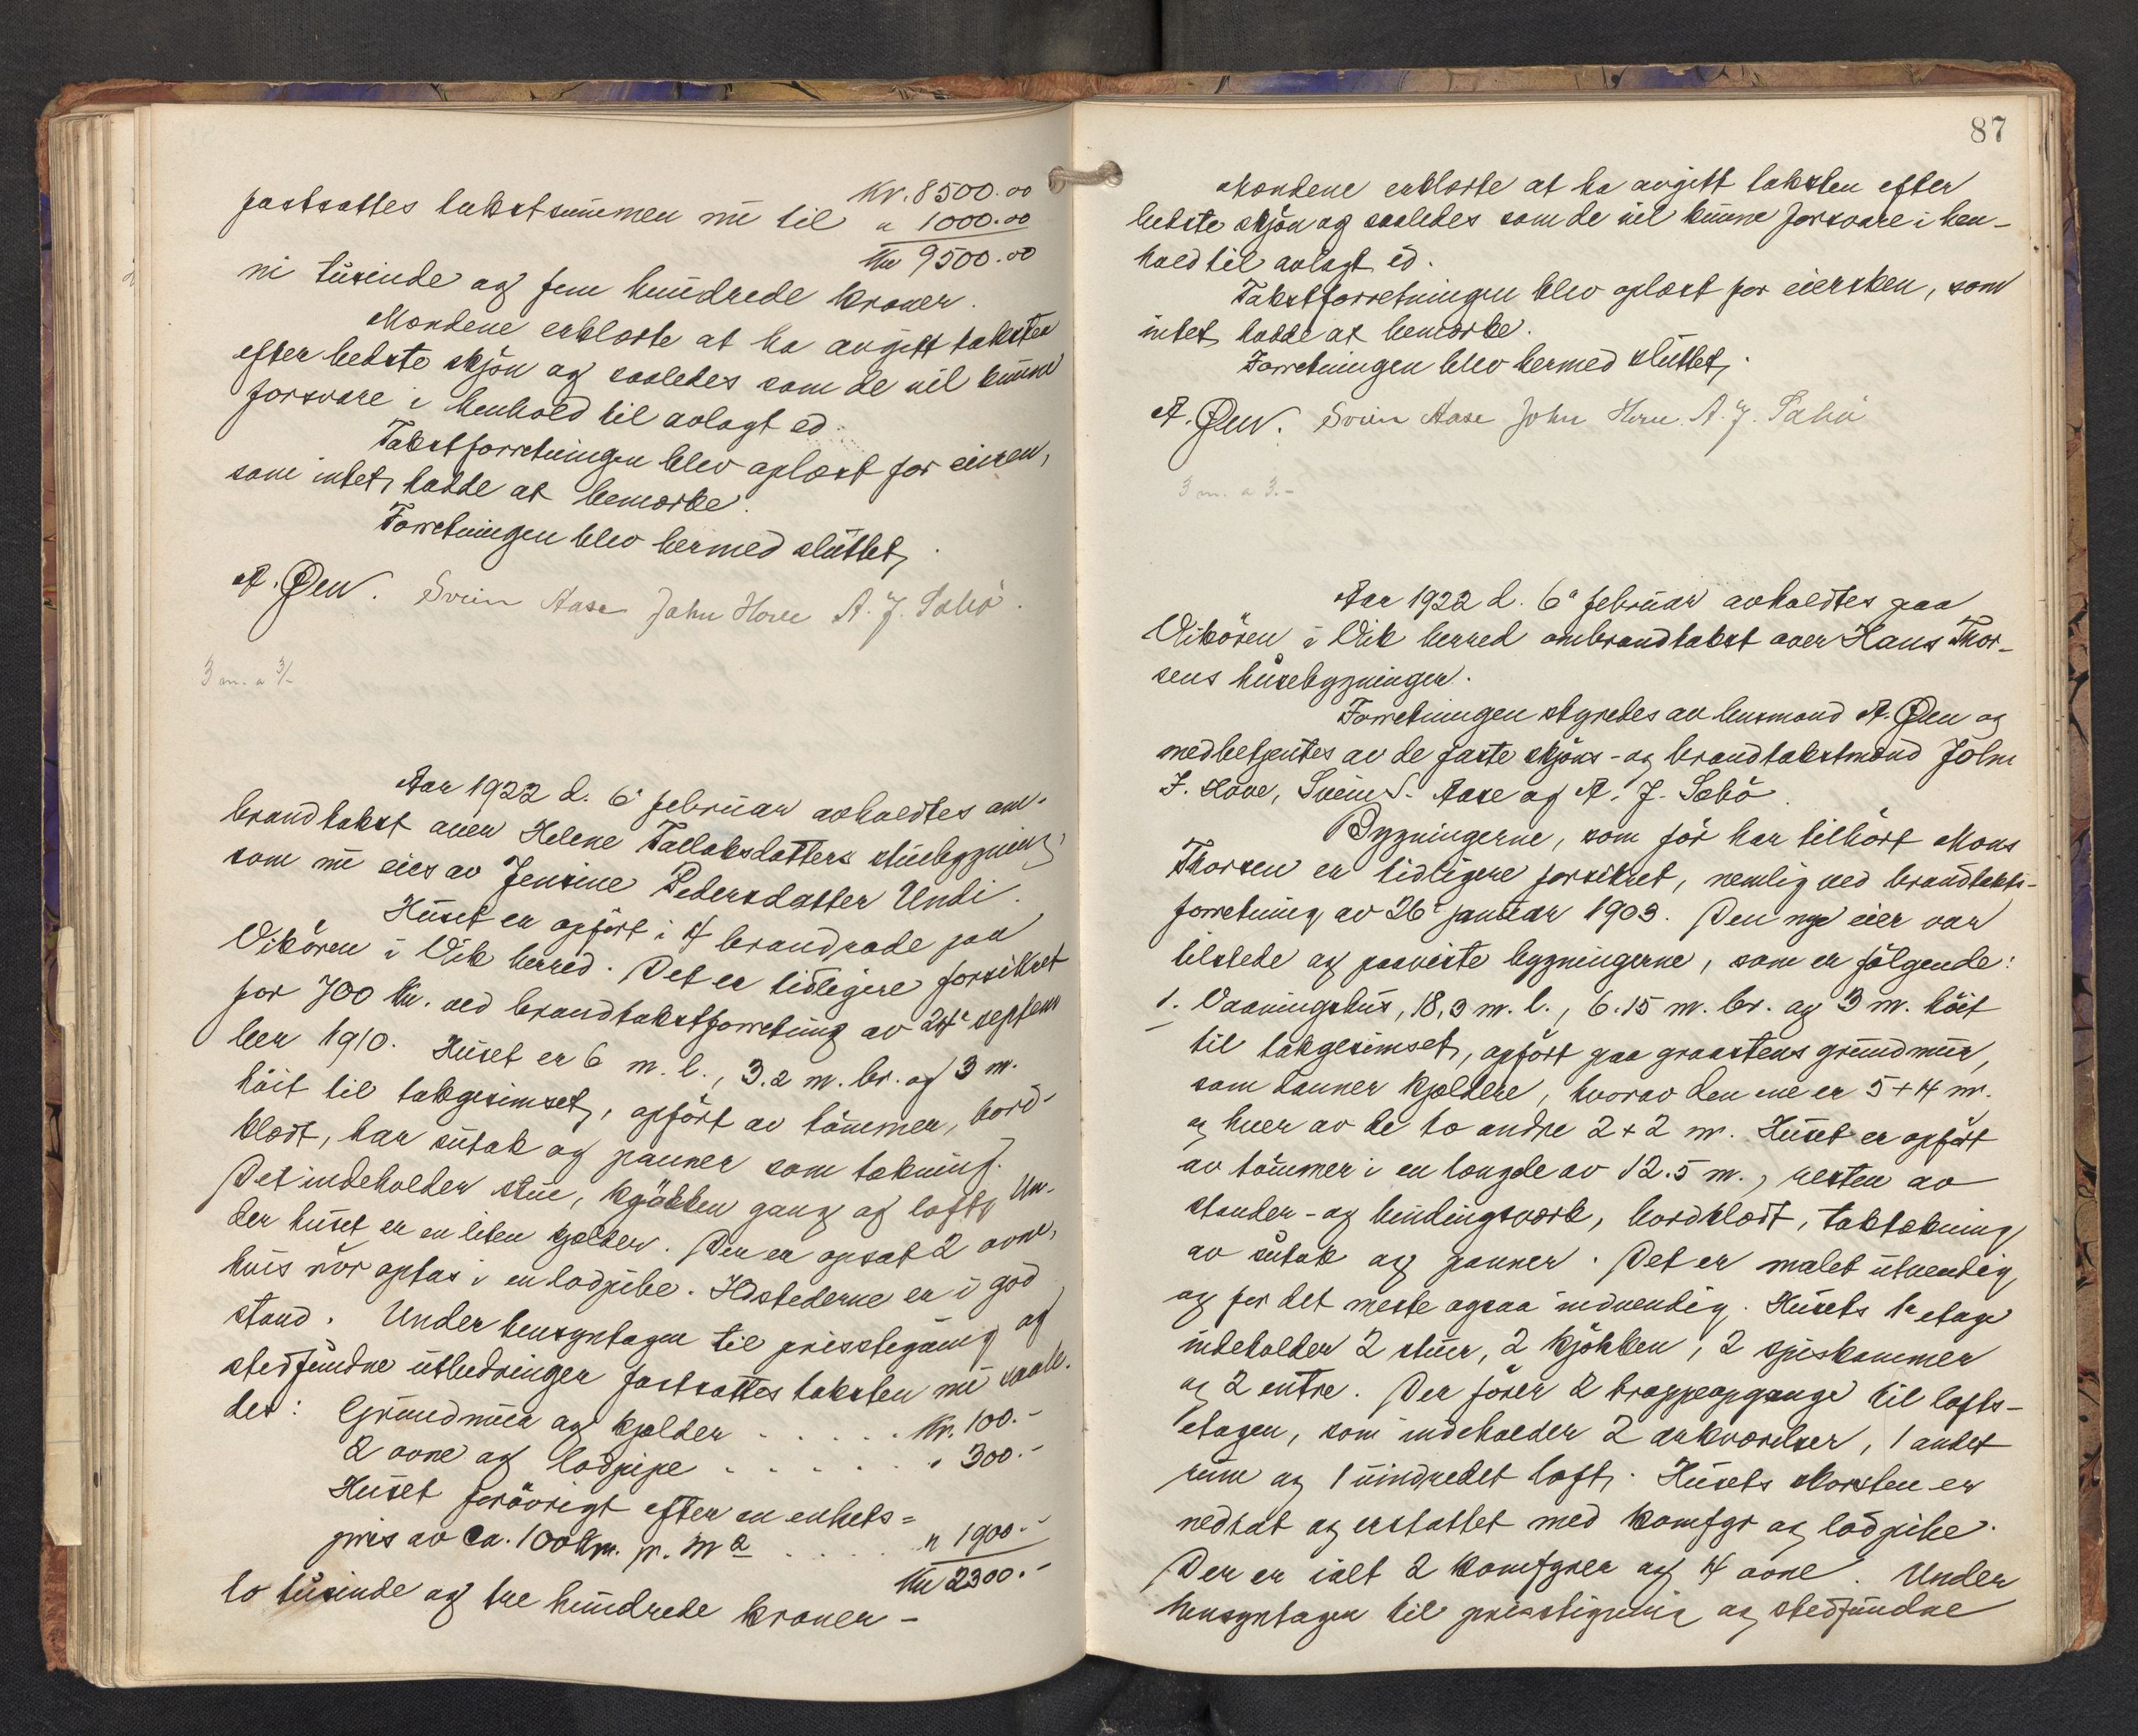 Kr. 8500.00
fastsattes takstsummen nu til " 1000.00
Kr 9500.00
ni tusinde og fem hundrede kroner.
Mændene erklærte at ha avgitt taksten
efter bedste skjön og saaledes som de vil kunne
forsvare i henhold til avlagt ed.
Takstforretningen blev oplæst for eieren,
som intet hadde at bemerke.
Forretningen blev hermed sluttet,
A. Øen. Svein Aase John Hove A. J. Sæbö.
3 m. a 3/-
Aar 1922 d. 6te februar avholdtes om-
brandtakst over Helene Tallaksdatters stuebygning,
som nu eies av Jensine Pedersdatter Undi.
Huset er opfört i 4 brandrode paa
Vikören i Vik herred. Det er tidligere forsikret
for 700 kr. ved brandtakstforretning av 24de septem
ber 1910. Huset er 6 m. l., 3.2 m. br. og 3 m.
höit til takgesimset, opfört av tömmer, bord-
klædt, har sutak og panner som tækning.
Det indeholder stue, kjökken gang og loft. Un-
der huset er en liten kjælder. Der er opsat 2 ovne,
hvis rör optas i en lodpibe. Ildstederne er i god
stand. Under hensyntagen til prisstegning og
stedfundne utbedringer fastsattes taksten nu saale-
des: Grundmur og kjælder . . . . . Kr. 100.-
2 ovne og lodpipe . . . . . . " 300.-
Huset forövrigt efter en enhets=
pris av ca. 100 kr. pr. m2 . . . . . " 1900.-
Kr 2300.-
to tusinde og tre hundrede kroner -
87
Mændene erklærte at ha avgitt taksten efter
bedste skjön og saaledes som de vil kunne forsvare i hen-
hold til avlagt ed.
Takstforretningen blev oplæst for eiersken, som
intet hadde at bemerke.
Forretningen blev hermed sluttet,
A. Øen. Svein Aase John Hove A. J. Sæbö
3 m. a 3.-
Aar 1922 d. 6te februar avholdtes paa
Vikören i Vik herred ombrandtakst over Hans Thor-
sens husebygninger.
Forretningen styredes av lensmand A. Øen og
medbetjentes av de faste skjöns- og brandtakstmænd John
J. Hove, Svein S. Aase og A. J. Sæbö.
Bygningerne, som för har tilhört Mons
Thorsen er tidligere forsikret, nemlig ved brandtakst-
forretning av 26de januar 1903. Den nye eier var
tilstede og paaviste bygningerne, som er fölgende:
1. Vaaningshus, 18,3 m. l., 6.15 m. br. og 3 m. höit
til takgesimset, opfört paa graastens grundmur,
som danner kjældere, hvorav den ene er 5+4 m.
og hver av de to andre 2+2 m. Huset er opfört
av tömmer i en længde av 12.5 m., resten av
stender- og bindingsverk, bordklædt, taktækning
av sutak og panner. Det er malet utvendig
og for det meste ogsaa indvendig. Husets 1te etage
indeholder 2 stuer, 2 kjökken, 2 spiskammer
og 2 entre. Der förer 2 trappeopgange til lofts-
etagen, som indeholder 2 arkværelser, 1 andet
rum og 1 uindredet loft. Husets skorsten er
nedtat og erstattet med komfyr og lodpibe.
Der er ialt 2 komfyrer og 4 ovne. Under
hensyntagen til prisstigning og stedfundne